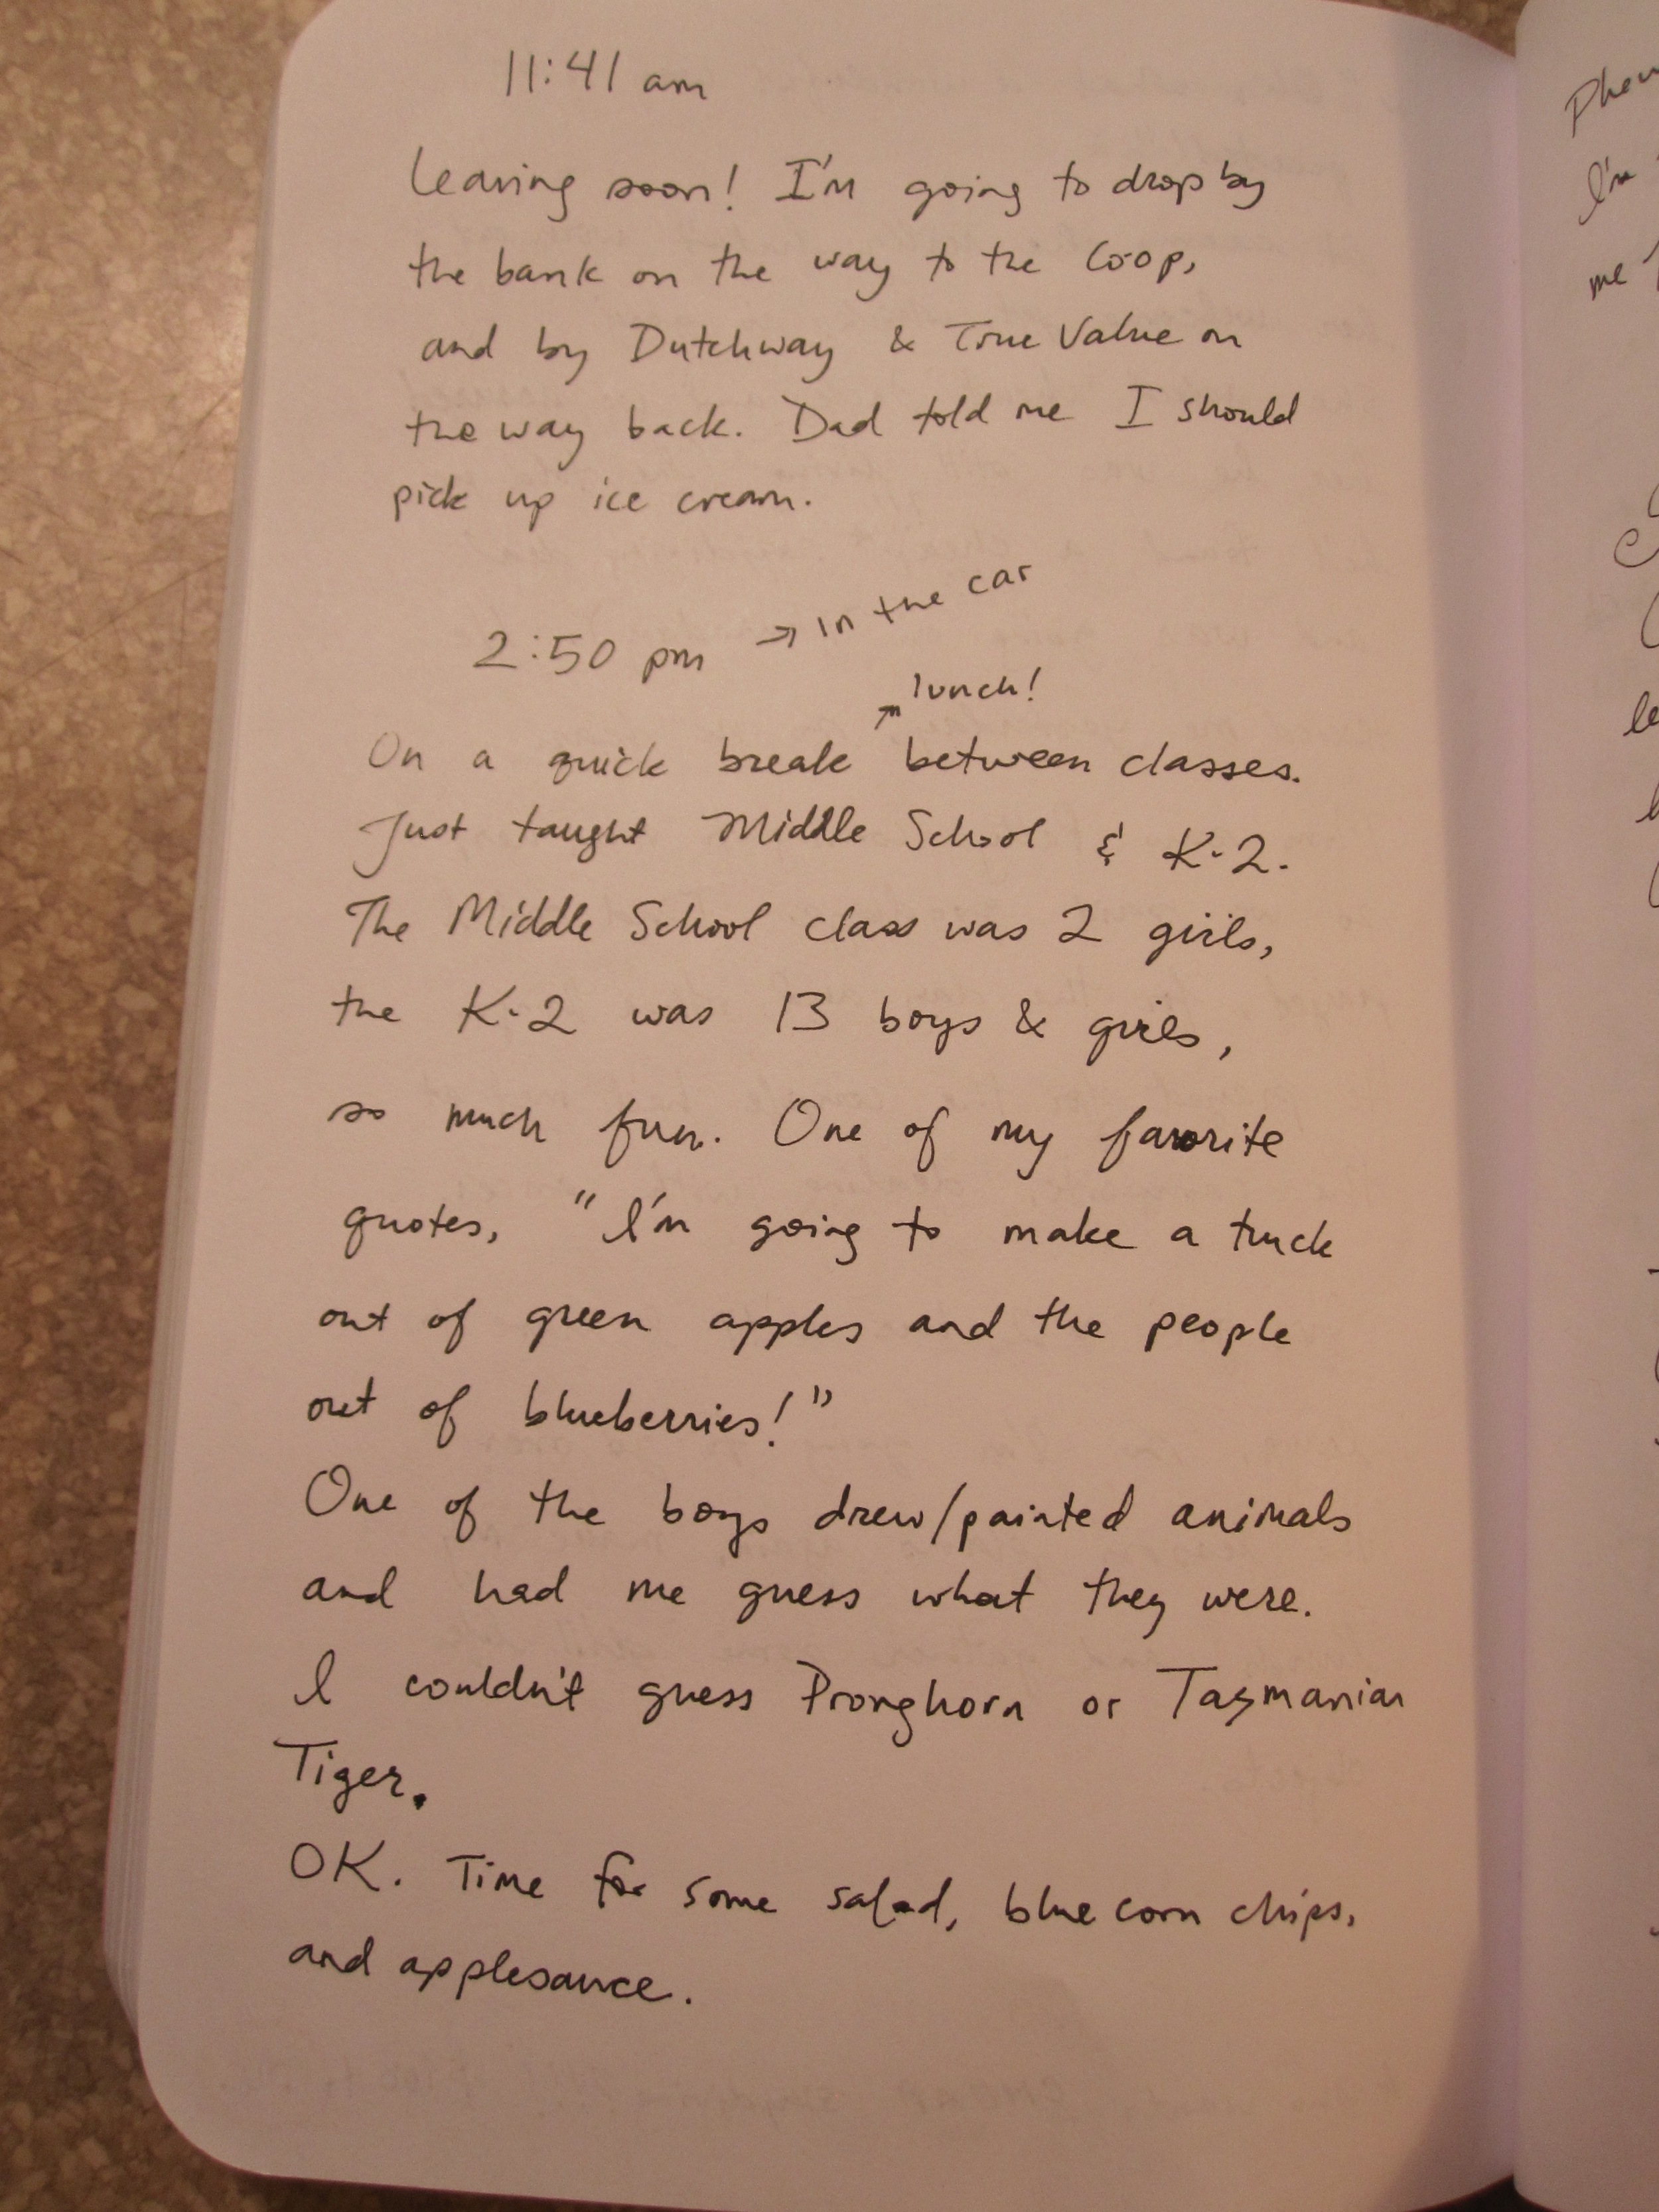 11:41 am
Leaving soon! I'm going to drop by
the bank on the way to the Coop,
and by Dutchway & True Value on
the way back. Dad told me I should
pick up ice cream.
2:50 pm → in the car
↗ lunch!
On a quick break between classes.
Just taught Middle School & K-2.
The Middle School class was 2 girls,
the K-2 was 13 boys & girls,
so much fun. One of my favorite
quotes, "I'm going to make a truck
out of green apples and the people
out of blueberries!"
One of the boys drew/painted animals
and had me guess what they were.
I couldn't guess Pronghorn or Tazmanian
Tiger.
OK. Time for some salad, blue corn chips,
and applesauce.
I'm
me